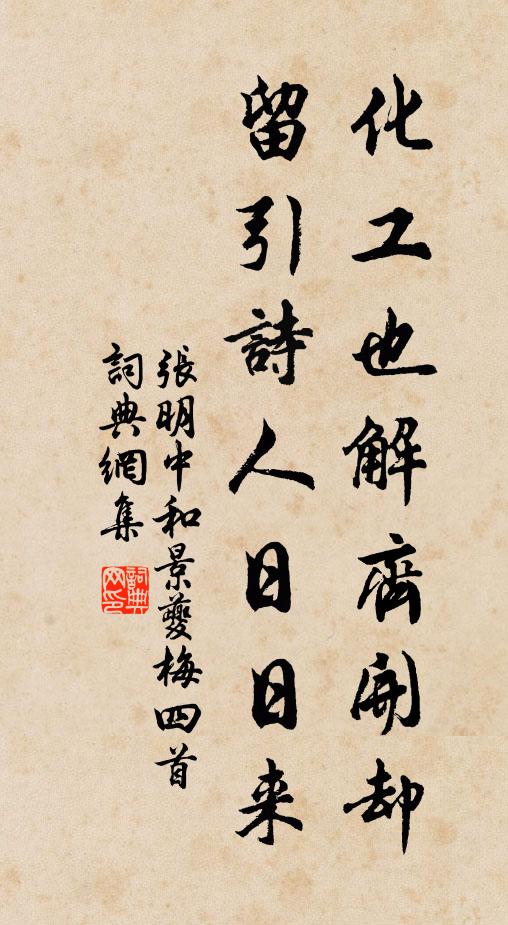 化工也解齊開却
留引詩人日日来
張明中和景夔梅四首
詞典網集
詞典
网印